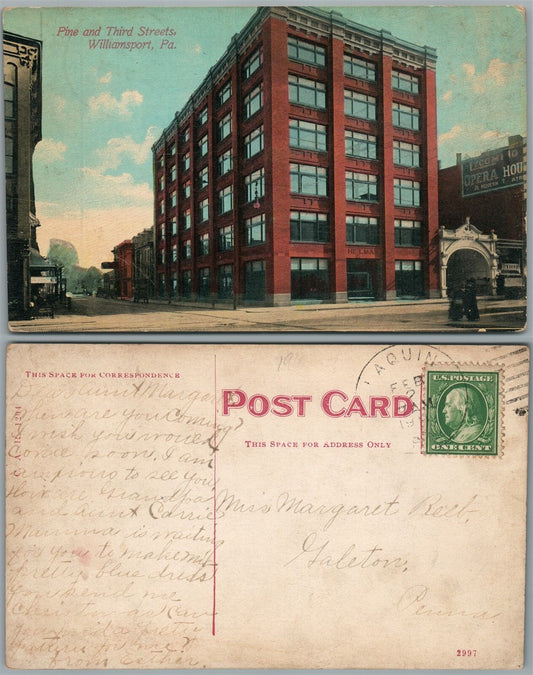 Pine and Third Streets,
Williamsport, Pa.
OPERA HOU
THIS SPACE FOR CORRESPONDENCE
POST CARD
THIS SPACE FOR ADDRESS ONLY
LAQUIN
FEB
2
U.S. POSTAGE
ONE CENT
Dear Aunt Margar
When are you coming?
I wish you would
come soon. I am
to see you
How are Grandpa
and Aunt Carrie
Mamma is waiting
for you to make my
pretty blue dress
you send me
Christmas Can
you send a pretty
pattern for me?
from Esther.
Miss Margaret Reeb,
Galeton,
Penna.
2997